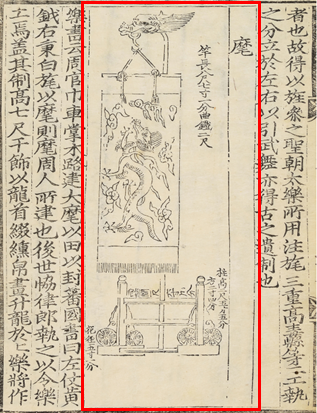 者也故得以旌參之聖朝太樂所用注旄三重高等二工執
之分立於左右以引武舞亦得古之遺制也
麾
竿長八尺七寸二分曲鐵二尺
柱高一尺九寸五分
方二寸四分
五寸六分
樂書云周官巾車掌木路建大麾以田以封蕃國書曰左仗黄
鉞右秉白旄以麾則麾周人所建也後世協律郎執之以令樂
工焉蓋其制高七尺干飾以龍首綴纁帛畫升龍於上樂將作